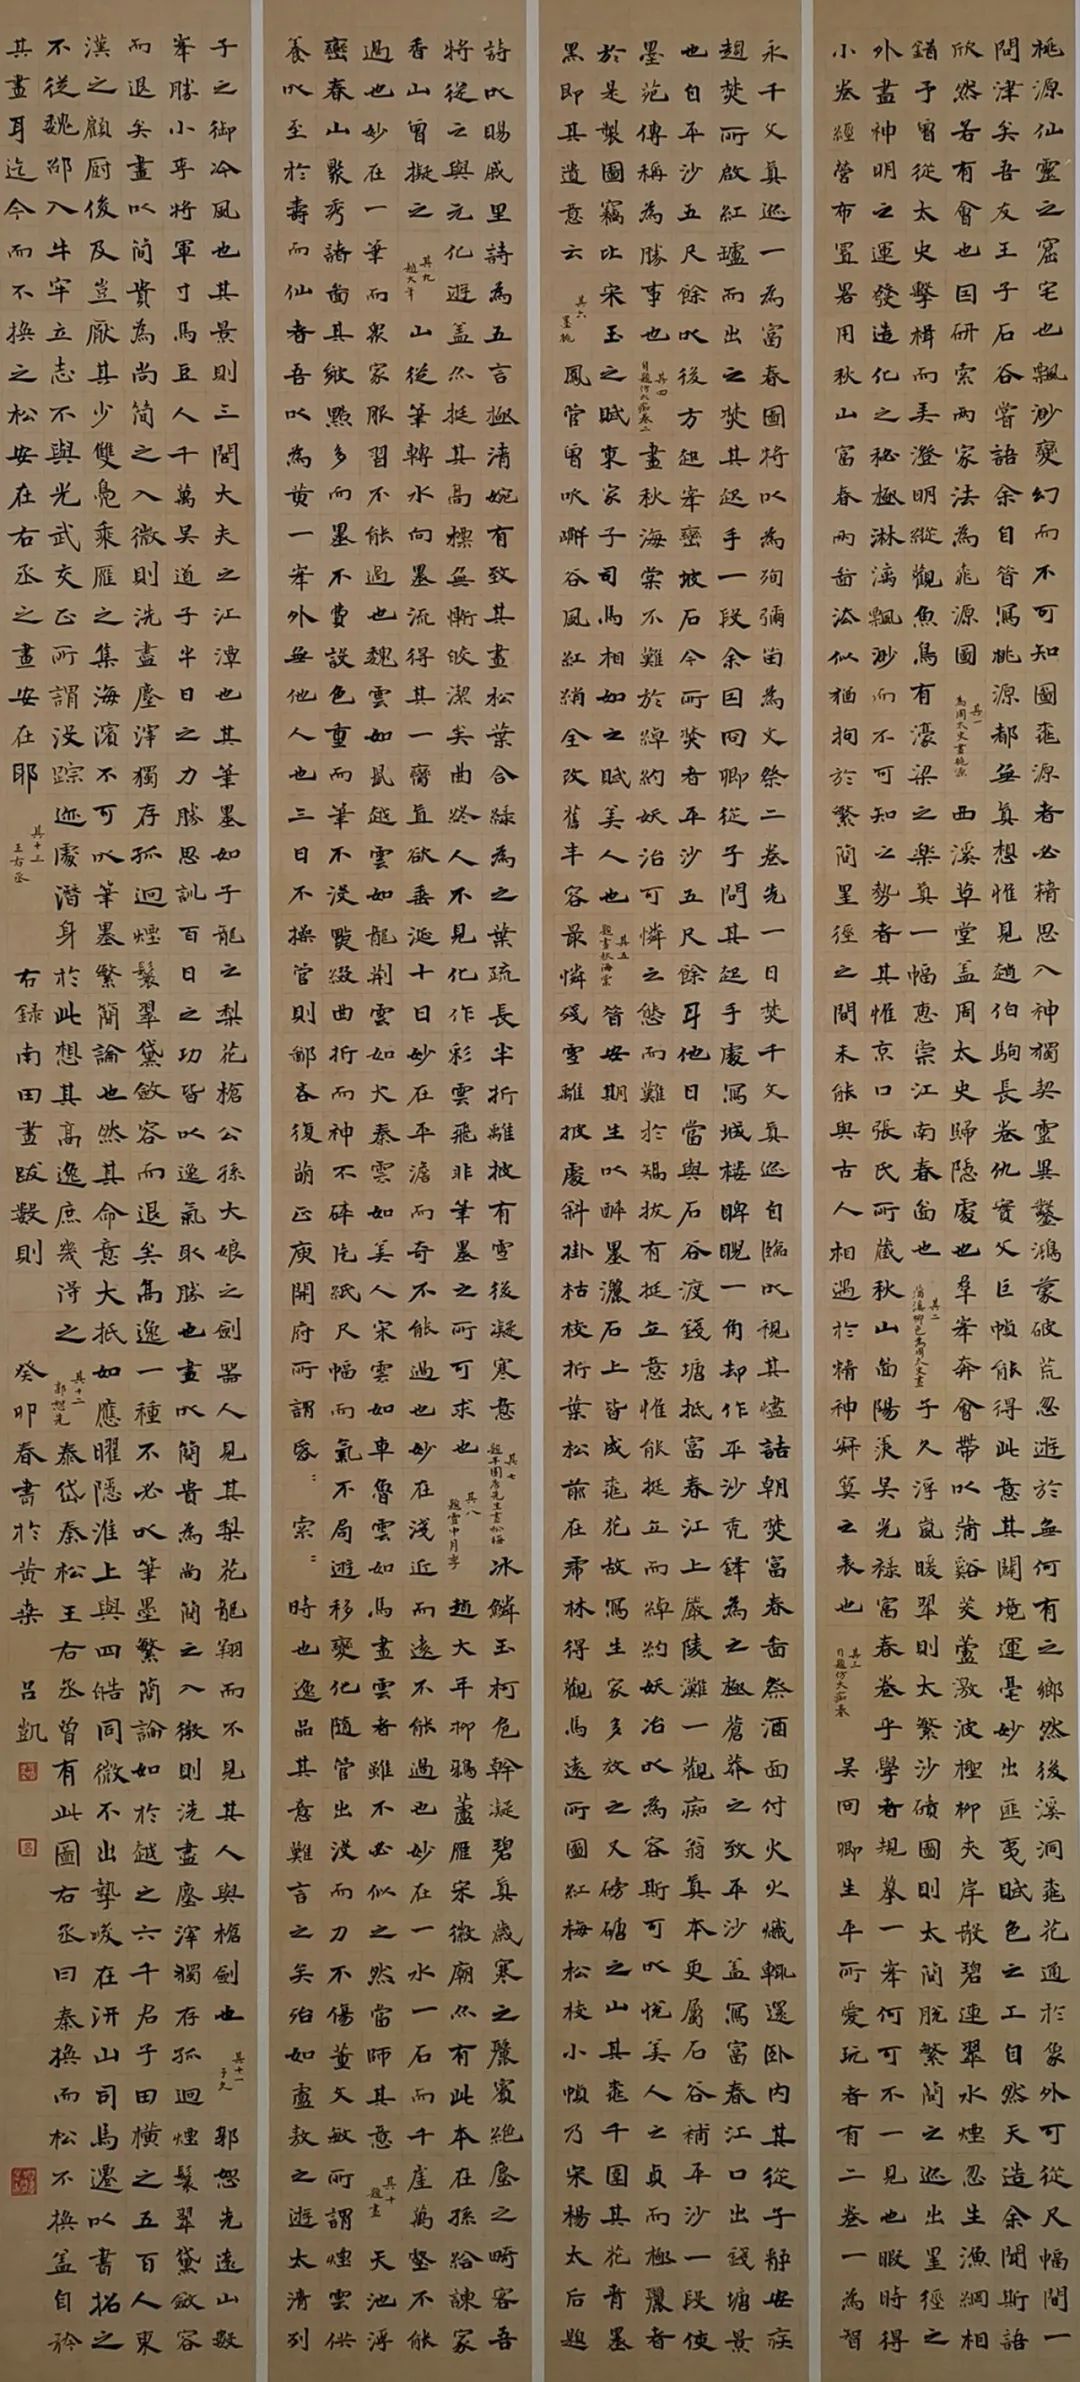 桃源仙靈之窟宅也飄渺變幻而不可知圖桃源者必精思入神獨契靈異鑿鴻蒙破荒忽遊於無何有之鄉然後溪洞桃花通於象外可從尺幅間一
問津矣吾友王子石谷嘗語余自昔寫桃源都無真想惟見趙伯駒長卷仇實父巨幀能得此意其闢境運毫妙出匪夷賦色之工自然天造余聞斯語
欣然若有會也因研索兩家法為桃源圖 其一 為周太史畫桃源 西溪草堂蓋周太史歸隱處也羣峯奔會帶以蒲谿茭蘆激波檉柳夾岸散碧連翠水煙忽生漁網相
錯予曾從太史擊楫而弄澄明縱觀魚鳥有濠梁之樂真一幅惠崇江南春啚也 其二 為周太史畫 子久浮嵐暖翠則太繁沙磧圖則太簡脫繁簡之迹出畦徑之
外盡神明之運發造化之秘極淋漓飄渺而不可知之勢者其惟京口張氏所藏秋山啚陽羨吳光祿富春卷乎學者規摹一峯何可不一見也暇時得
小卷經營布置畧用秋山富春兩啚法似猶拘於繁簡畦徑之間未能與古人相遇於精神寂寞之表也 其三 自題仿大痴卷 吳冏卿生平所愛玩者有二卷一為智
永千文真迹一為富春圖將以為殉彌留為文祭二卷先一日焚千文真迹自臨以視其燼詰朝焚富春啚祭酒面付火火熾輒還卧內其從子靜安疾
趨焚所啟紅爐而出之焚其起手一段余因冏卿從子問其起手處寫城樓睥睨一角却作平沙禿鋒為之極蒼莽之致平沙蓋寫富春江口出錢塘景
也自平沙五尺餘以後方起峯巒坡石今所焚者平沙五尺餘耳他日當與石谷渡錢塘抵富春江上嚴陵灘一觀痴翁真本更屬石谷補平沙一段使
墨苑傳稱為勝事也 其四 自題仿大痴卷二 畫秋海棠不難於綽約妖冶可憐之態而難於矯拔有挺立意惟能挺立而綽約妖冶以為容斯可以悅美人之貞而極麗者
於是製圖竊比宋玉之賦東家子司馬相如之賦美人也 其五 題畫秋海棠 昔安期生以醉墨灑石上皆成桃花故寫生家多放之又磅礴之山其桃千圍其花青墨
黑即其遺意云 其六 墨桃 鳳管曾吹嶰谷風紅綃全改舊丰容最憐殘雪離披處斜掛枯枝折葉松前在雩林得觀馬遠所圖紅梅松枝小幀乃宋楊太后題
詩以賜戚里詩為五言極清婉有致其畫松葉合綠為之葉疏長半折離披有雪後凝寒意 其七 題平圃唐先生畫松梅 冰鱗玉柯危幹凝碧真歲寒之麗賓絕塵之畸客吾
將從之與元化遊蓋亦挺其高標無慚皎潔矣曲終人不見化作彩雲飛非筆墨之所可求也 其八 題雪中月季 趙大年柳鴉蘆雁宋徽廟亦有此本在孫給諫家
香山曾擬之 其九 趙大年 山從筆轉水向墨流得其一臠直欲垂涎十日妙在平澹而奇不能過也妙在淺近而遠不能過也妙在一水一石而千崖萬壑不能
過也妙在一筆而眾家服習不能過也魏雲如鼠越雲如龍荆雲如犬秦雲如美人宋雲如車魯雲如馬畫雲者雖不必似之然當師其意 其十 題畫 天池浮
巒春山聚秀諸啚其皴點多而墨不費設色重而筆不沒點綴曲折而神不碎片紙尺幅而氣不局遊移變化隨管出沒而力不傷董文敏所謂煙雲供
養以至於壽而仙者吾以為黃一峯外無他人也三日不操管則鄙吝復萌正庾開府所謂昏〻索〻時也逸品其意難言之矣殆如盧敖之遊太清列
子之御冷風也其景則三閭大夫之江潭也其筆墨如子龍之梨花槍公孫大娘之劍器人見其梨花龍翔而不見其人與槍劍也 其十一 子久 郭恕先遠山數
峯勝小李將軍寸馬豆人千萬吳道子半日之力勝思訓百日之功皆以逸氣取勝也畫以簡貴為尚簡之入微則洗盡塵滓獨存孤迥煙鬟翠黛斂容
而退矣畫以簡貴為尚簡之入微則洗盡塵滓獨存孤迥煙鬟翠黛斂容而退矣高逸一種不必以筆墨繁簡論如於越之六千君子田橫之五百人東
漢之顧廚俊及豈厭其少雙鳧乘雁之集海濱不可以筆墨繁簡論也然其命意大抵如應曜隱淮上與四皓同徵不出摯峻在汧山司馬遷以書招之
不從魏邵入牛牢立志不與光武交正所謂沒踪迹處潛身於此想其高逸庶幾得之 其十二 郭恕先 泰岱秦松王右丞曾有此圖右丞曰秦換而松不換蓋自矜
其畫耳迄今而不換之松安在右丞之畫安在耶 其十三 王右丞 右錄南田畫跋數則 癸卯春書於黃桒 呂凱